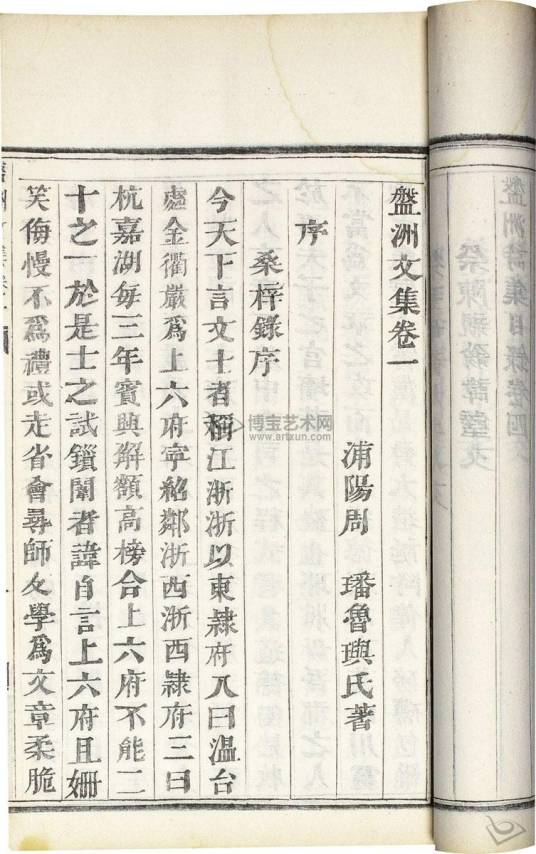 盤洲文集卷一
浦陽周 璠魯璵氏著
序
桑梓錄序
今天下言文士者稱江浙浙以東隷府八曰溫台
處金衢嚴爲上六府寧紹鄰浙西浙西隷府三曰
杭嘉湖每三年賓興解額高榜合上六府不能二
十之一於是士之試鎖闈者諱自言上六府且姍
笑侮慢不爲禮或走省會尋師友學爲文章柔脆
博宝艺术网
www.artxun.com